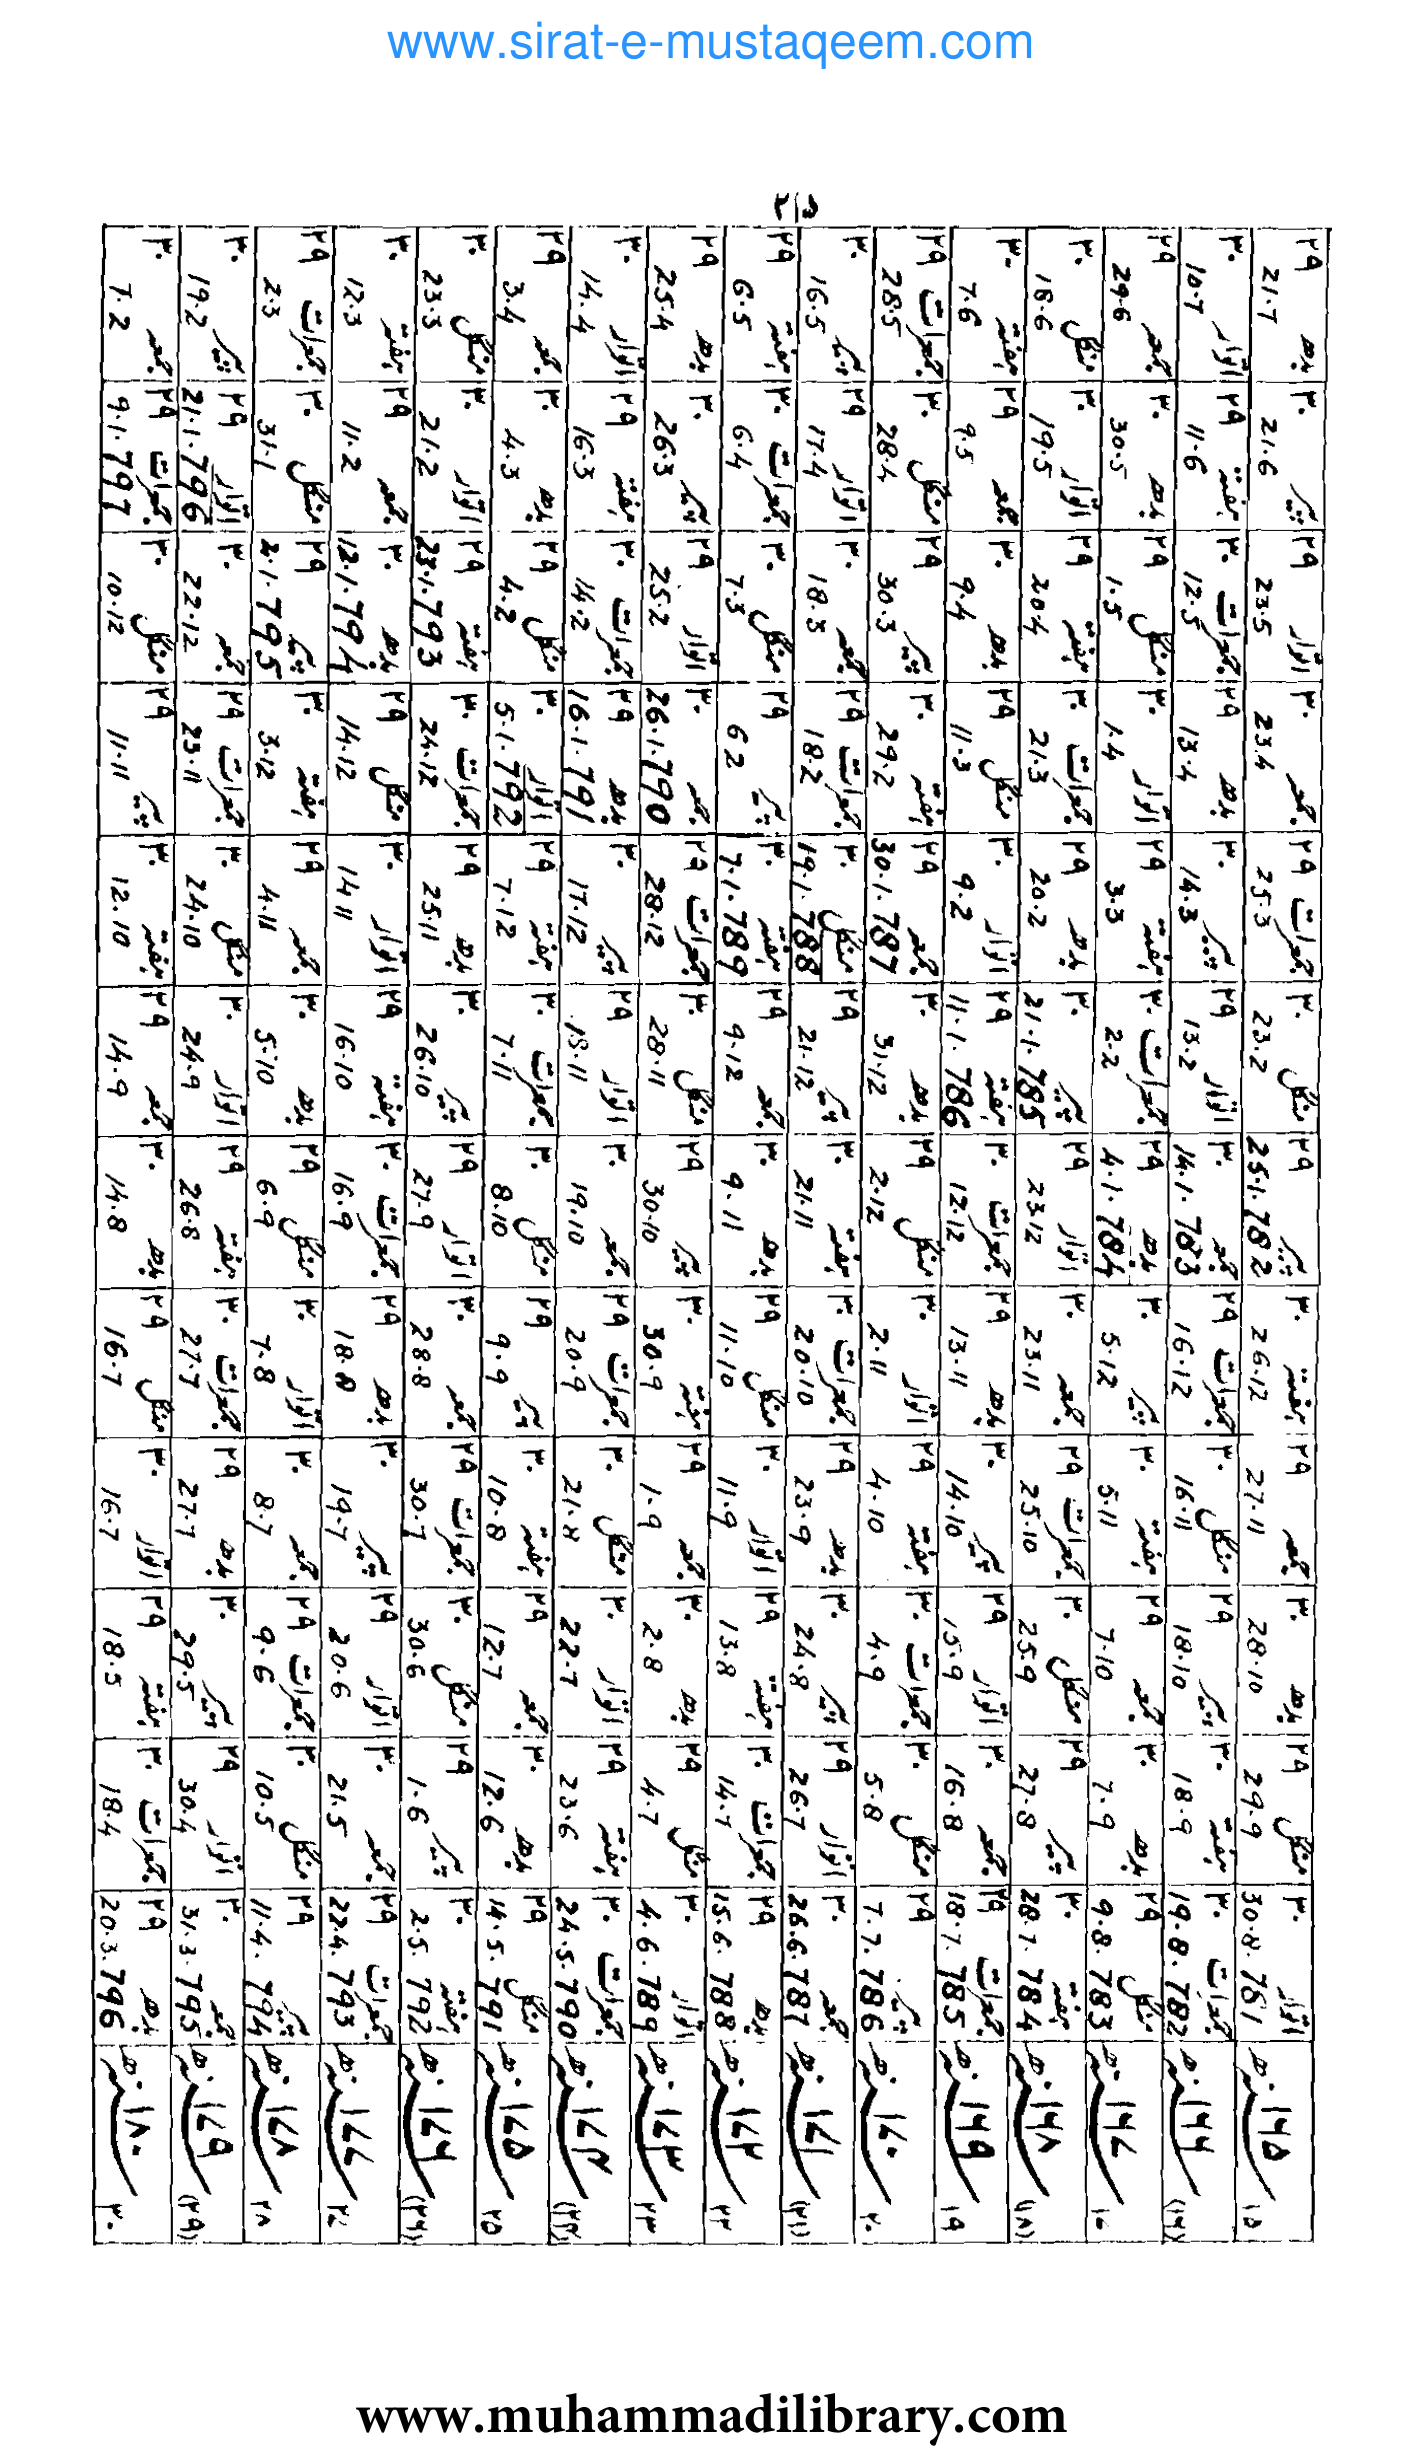 www.sirat-e-mustaqeem.com
(۱۵) ۱۶۵ھ | اتوار ۳۰ 30.8.781 | منگل ۲۹ 29.9 | بدھ ۳۰ 28.10 | جمعہ ۲۹ 27.11 | ہفتہ ۳۰ 26.12 | پیر ۲۹ 25.1.782 | منگل ۳۰ 23.2 | جمعرات ۲۹ 25.3 | جمعہ ۳۰ 23.4 | اتوار ۲۹ 23.5 | پیر ۳۰ 21.6 | بدھ ۲۹ 21.7
(۱۶) ۱۶۶ھ | جمعرات ۳۰ 19.8.782 | ہفتہ ۳۰ 18.9 | پیر ۲۹ 18.10 | منگل ۳۰ 16.11 | جمعرات ۲۹ 16.12 | جمعہ ۳۰ 14.1.783 | اتوار ۲۹ 13.2 | پیر ۳۰ 14.3 | بدھ ۲۹ 13.4 | جمعرات ۳۰ 12.5 | ہفتہ ۲۹ 11.6 | اتوار ۳۰ 10.7
۱۷ ۱۶۷ھ | منگل ۲۹ 9.8.783 | بدھ ۳۰ 7.9 | جمعہ ۲۹ 7.10 | ہفتہ ۳۰ 5.11 | پیر ۳۰ 5.12 | بدھ ۲۹ 4.1.784 | جمعرات ۳۰ 2.2 | ہفتہ ۲۹ 3.3 | اتوار ۳۰ 1.4 | منگل ۲۹ 1.5 | بدھ ۳۰ 30.5 | جمعہ ۲۹ 29.6
(۱۸) ۱۶۸ھ | ہفتہ ۳۰ 28.7.784 | پیر ۲۹ 27.8 | منگل ۳۰ 25.9 | جمعرات ۲۹ 25.10 | جمعہ ۳۰ 23.11 | اتوار ۲۹ 23.12 | پیر ۳۰ 21.1.785 | بدھ ۲۹ 20.2 | جمعرات ۳۰ 21.3 | ہفتہ ۲۹ 20.4 | اتوار ۳۰ 19.5 | منگل ۳۰ 18.6
۱۹ ۱۶۹ھ | جمعرات ۲۹ 18.7.785 | جمعہ ۳۰ 16.8 | اتوار ۲۹ 15.9 | پیر ۳۰ 14.10 | بدھ ۲۹ 13.11 | جمعرات ۳۰ 12.12 | ہفتہ ۲۹ 11.1.786 | اتوار ۳۰ 9.2 | منگل ۲۹ 11.3 | بدھ ۳۰ 9.4 | جمعہ ۲۹ 9.5 | ہفتہ ۳۰ 7.6
۲۰ ۱۷۰ھ | پیر ۲۹ 7.7.786 | منگل ۳۰ 5.8 | جمعرات ۳۰ 4.9 | ہفتہ ۲۹ 4.10 | اتوار ۳۰ 2.11 | منگل ۲۹ 2.12 | بدھ ۳۰ 31.12 | جمعہ ۲۹ 30.1.787 | ہفتہ ۳۰ 29.2 | پیر ۲۹ 30.3 | منگل ۳۰ 28.4 | جمعرات ۲۹ 28.5
(۲۱) ۱۷۱ھ | جمعہ ۳۰ 26.6.787 | اتوار ۲۹ 26.7 | پیر ۳۰ 24.8 | بدھ ۲۹ 23.9 | جمعرات ۳۰ 20.10 | ہفتہ ۳۰ 21.11 | پیر ۲۹ 21.12 | منگل ۳۰ 19.1.788 | جمعرات ۲۹ 18.2 | جمعہ ۳۰ 18.3 | اتوار ۲۹ 17.4 | پیر ۳۰ 16.5
۲۲ ۱۷۲ھ | بدھ ۲۹ 15.6.788 | جمعرات ۳۰ 14.7 | ہفتہ ۲۹ 13.8 | اتوار ۳۰ 11.9 | منگل ۲۹ 11.10 | بدھ ۳۰ 9.11 | جمعہ ۲۹ 9.12 | ہفتہ ۳۰ 7.1.789 | پیر ۲۹ 6.2 | منگل ۳۰ 7.3 | جمعرات ۳۰ 6.4 | ہفتہ ۲۹ 6.5
۲۳ ۱۷۳ھ | اتوار ۳۰ 4.6.789 | منگل ۲۹ 4.7 | بدھ ۳۰ 2.8 | جمعہ ۲۹ 1.9 | ہفتہ ۳۰ 30.9 | پیر ۲۹ 30.10 | منگل ۳۰ 28.11 | جمعرات ۲۹ 28.12 | جمعہ ۳۰ 26.1.790 | اتوار ۲۹ 25.2 | پیر ۳۰ 26.3 | بدھ ۲۹ 25.4
(۲۴) ۱۷۴ھ | جمعرات ۳۰ 24.5.790 | ہفتہ ۲۹ 23.6 | اتوار ۳۰ 22.7 | منگل ۳۰ 21.8 | جمعرات ۲۹ 20.9 | جمعہ ۳۰ 19.10 | اتوار ۲۹ 18.11 | پیر ۳۰ 17.12 | بدھ ۲۹ 16.1.791 | جمعرات ۳۰ 14.2 | ہفتہ ۲۹ 16.3 | اتوار ۳۰ 14.4
۲۵ ۱۷۵ھ | منگل ۲۹ 14.5.791 | بدھ ۳۰ 12.6 | جمعہ ۲۹ 12.7 | ہفتہ ۳۰ 10.8 | پیر ۲۹ 9.9 | منگل ۳۰ 8.10 | جمعرات ۳۰ 7.11 | ہفتہ ۲۹ 7.12 | اتوار ۳۰ 5.1.792 | منگل ۲۹ 4.2 | بدھ ۳۰ 4.3 | جمعہ ۲۹ 3.4
(۲۶) ۱۷۶ھ | ہفتہ ۳۰ 2.5.792 | پیر ۲۹ 1.6 | منگل ۳۰ 30.6 | جمعرات ۲۹ 30.7 | جمعہ ۳۰ 28.8 | اتوار ۲۹ 27.9 | پیر ۳۰ 26.10 | بدھ ۲۹ 25.11 | جمعرات ۳۰ 24.12 | ہفتہ ۲۹ 23.1.793 | اتوار ۳۰ 21.2 | منگل ۳۰ 23.3
۲۷ ۱۷۷ھ | جمعرات ۲۹ 22.4.793 | جمعہ ۳۰ 21.5 | اتوار ۲۹ 20.6 | پیر ۳۰ 19.7 | بدھ ۲۹ 18.8 | جمعرات ۳۰ 16.9 | ہفتہ ۲۹ 16.10 | اتوار ۳۰ 14.11 | منگل ۲۹ 14.12 | بدھ ۳۰ 12.1.794 | جمعہ ۲۹ 11.2 | ہفتہ ۳۰ 12.3
۲۸ ۱۷۸ھ | پیر ۲۹ 11.4.794 | منگل ۳۰ 10.5 | جمعرات ۲۹ 9.6 | جمعہ ۳۰ 8.7 | اتوار ۳۰ 7.8 | منگل ۲۹ 6.9 | بدھ ۳۰ 5.10 | جمعہ ۲۹ 4.11 | ہفتہ ۳۰ 3.12 | پیر ۲۹ 2.1.795 | منگل ۳۰ 31.1 | جمعرات ۲۹ 2.3
(۲۹) ۱۷۹ھ | جمعہ ۳۰ 31.3.795 | اتوار ۲۹ 30.4 | پیر ۳۰ 29.5 | بدھ ۲۹ 27.7 | جمعرات ۳۰ 27.7 | ہفتہ ۲۹ 26.8 | اتوار ۳۰ 24.9 | منگل ۳۰ 24.10 | جمعرات ۲۹ 23.11 | جمعہ ۳۰ 22.12 | اتوار ۲۹ 21.1.796 | پیر ۳۰ 19.2
۳۰ ۱۸۰ھ | بدھ ۲۹ 20.3.796 | جمعرات ۳۰ 18.4 | ہفتہ ۲۹ 18.5 | اتوار ۳۰ 16.7 | منگل ۲۹ 16.7 | بدھ ۳۰ 14.8 | جمعہ ۲۹ 14.9 | ہفتہ ۳۰ 12.10 | پیر ۲۹ 11.11 | منگل ۳۰ 10.12 | جمعرات ۲۹ 9.1.797 | جمعہ ۳۰ 7.2
www.muhammadilibrary.com